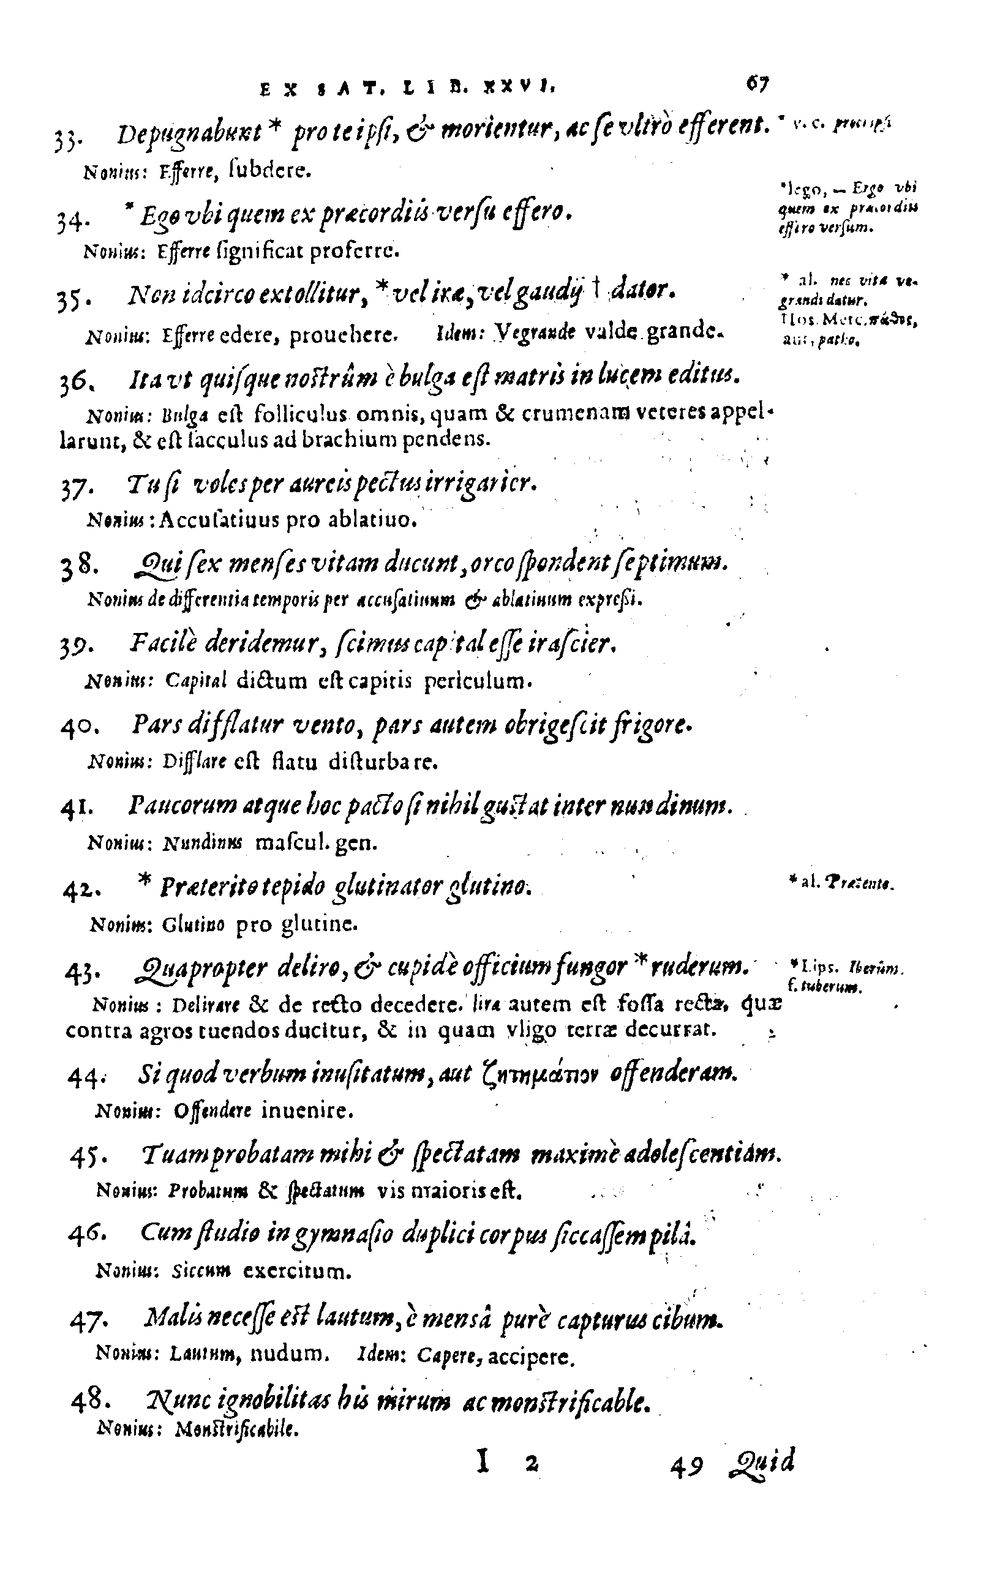 EX SAT. LIB. XXVI. 67
33. Depugnabunt * pro te ipsi, & morientur, ac se vltrò efferent. * v. c. præcipsi
Nonius: Efferre, subdere.
34. * Ego vbi quem ex præcordiis versu effero.
*lego, — Ergo vbi
quem ex præcordiis
effero versum.
Nonius: Efferre significat proferre.
35. Non idcirco extollitur, * vel iræ, vel gaudij † dator.
* al. nec vitæ ve-
grandi datur.
†Ios. Merc. πάθος,
aut, patho.
Nonius: Efferre edere, prouehere. Idem: Vegrande valde grande.
36. Ita vt quisque nostrûm è bulga est matris in lucem editus.
Nonius: Bulga est folliculus omnis, quam & crumenam veteres appel-
larunt, & est sacculus ad brachium pendens.
37. Tu si voles per aureis pectus irrigarier.
Nonius: Accusatiuus pro ablatiuo.
38. Qui sex menses vitam ducunt, orco spondent septimum.
Nonius de differentia temporis per accusatiuum & ablatiuum expressi.
39. Facilè deridemur, scimus capital esse irascier.
Nonius: Capital dictum est capitis periculum.
40. Pars difflatur vento, pars autem obrigescit frigore.
Nonius: Difflare est flatu disturbare.
41. Paucorum atque hoc pacto si nihil gustat inter nundinum.
Nonius: Nundinus mascul. gen.
42. * Præterito tepido glutinator glutino. * al. Præsento.
Nonius: Glutino pro glutine.
43. Quapropter deliro, & cupidè officium fungor * ruderum.
*Lips. Iberûm.
f. tuberum.
Nonius: Delirare & de recto decedere. lira autem est fossa recta, quæ
contra agros tuendos ducitur, & in quam vligo terræ decurrat.
44. Si quod verbum inusitatum, aut ζητημάτιον offenderam.
Nonius: Offendere inuenire.
45. Tuam probatam mihi & spectatam maximè adolescentiam.
Nonius: Probatum & spectatum vis maioris est.
46. Cum studio in gymnasio duplici corpus siccassem pilâ.
Nonius: Siccum exercitum.
47. Malis necesse est lautum, è mensâ purè capturus cibum.
Nonius: Lautum, nudum. Idem: Capere, accipere.
48. Nunc ignobilitas his mirum ac monstrificable.
Nonius: Monstrificabile.
I 2 49 Quid